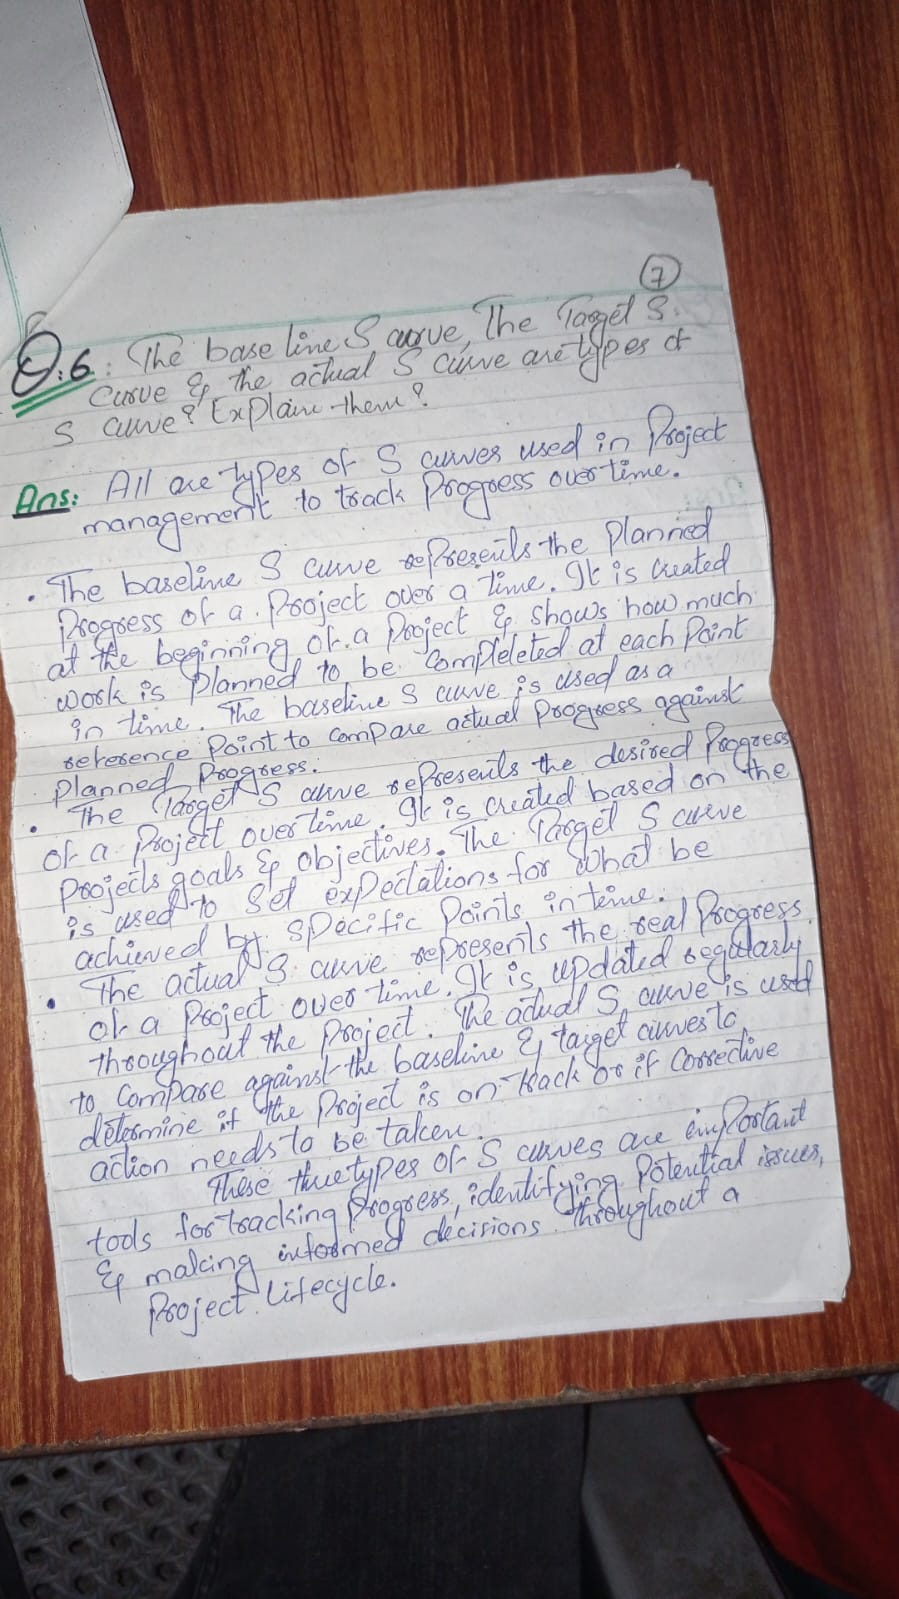 7
Q.6: The base line S curve, The Target S.
Curve & the actual S curve are types of
S curve? Explain them?
Ans: All are types of S curves used in Project
management to track Progress over time.
• The baseline S curve represents the Planned
Progress of a Project over a time. It is created
at the beginning of a Project & shows how much
work is Planned to be Completeted at each Point
in time. The baseline S curve is used as a
reference Point to compare actual Progress against
Planned Progress.
• The Target S curve represents the desired Progress
of a Project over time. It is created based on the
Projects goals & objectives. The Target S curve
is used to Set expectations for what be
achieved by specific Points in time.
• The actual S curve represents the real Progress
of a Project over time. It is updated regularly
throughout the Project. The actual S curve is used
to Compare against the baseline & target curves to
determine if the Project is on-track or if Corrective
action needs to be taken.
These three types of S curves are important
tools for tracking Progress, identifying Potential issues,
& making informed decisions throughout a
Project Lifecycle.